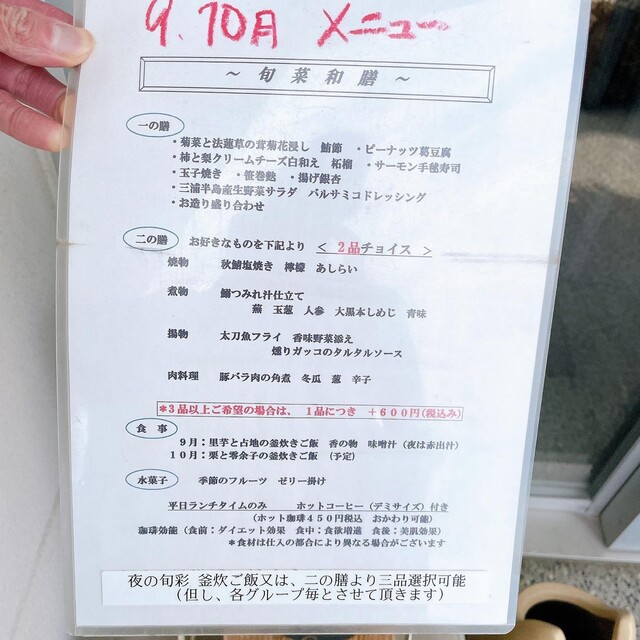 9.10月 メニュー
～ 旬 菜 和 膳 ～
一の膳
・菊菜と法蓮草の茸菊花浸し 鮪節 ・ピーナッツ葛豆腐
・柿と梨クリームチーズ白和え 柘榴 ・サーモン手毬寿司
・玉子焼き ・笹巻麩 ・揚げ銀杏
・三浦半島産生野菜サラダ バルサミコドレッシング
・お造り盛り合わせ
二の膳 お好きなものを下記より ＜ 2品チョイス ＞
焼物 秋鯖塩焼き 檸檬 あしらい
煮物 鰯つみれ汁仕立て
蕪 玉葱 人参 大黒本しめじ 青味
揚物 太刀魚フライ 香味野菜添え
燻りガッコのタルタルソース
肉料理 豚バラ肉の角煮 冬瓜 葱 辛子
*3品以上ご希望の場合は、 1品につき ＋600円(税込み)
食 事
9月：里芋と占地の釜炊きご飯 香の物 味噌汁（夜は赤出汁）
10月：栗と零余子の釜炊きご飯 （予定）
水菓子 季節のフルーツ ゼリー掛け
平日ランチタイムのみ ホットコーヒー（デミサイズ）付き
（ホット珈琲450円税込 おかわり可能）
珈琲効能（食前：ダイエット効果 食中：食欲増進 食後：美肌効果）
＊食材は仕入の都合により異なる場合がございます
夜の旬彩 釜炊ご飯又は、二の膳より三品選択可能
（但し、各グループ毎とさせて頂きます）